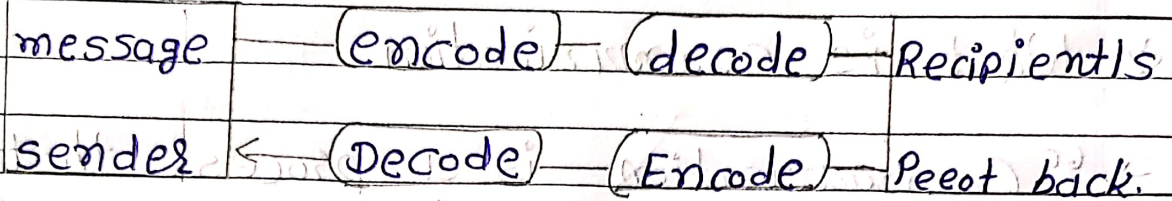 message encode decode Recipient/s
sender Decode Encode Peeot back.